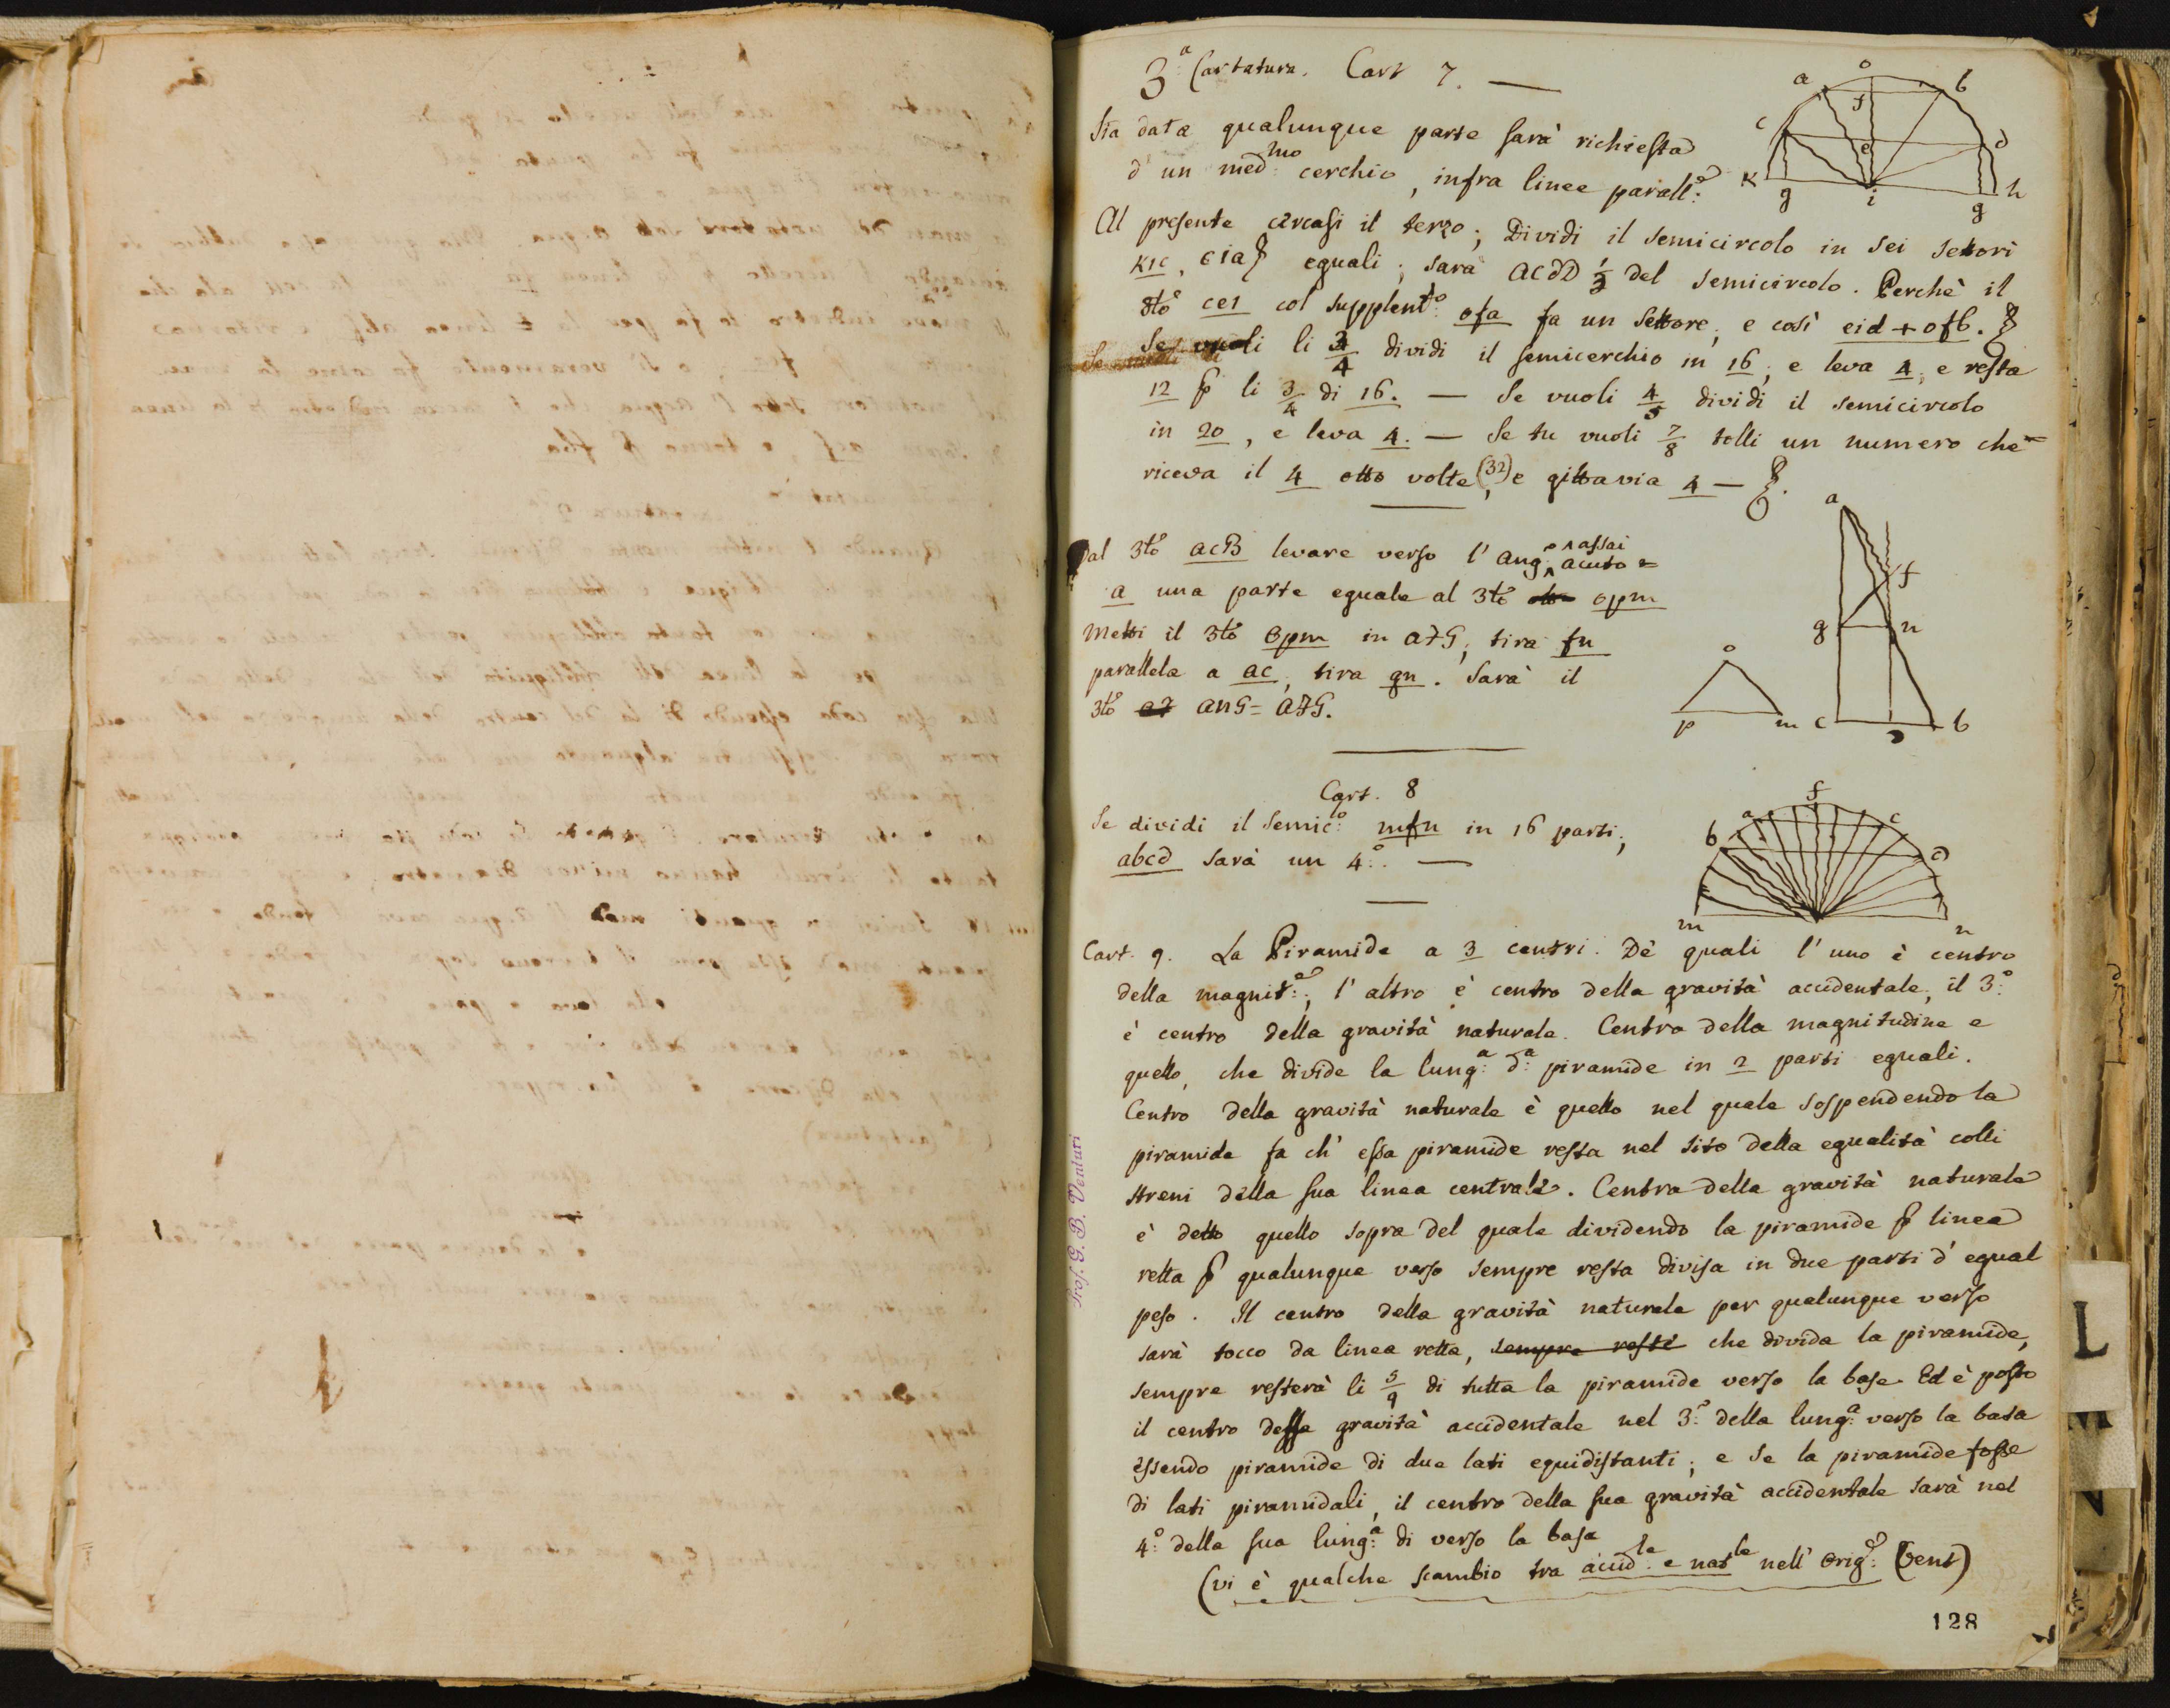 3.ª Cartatura. Cart 7. —
Sia data qualunque parte sarà richiesta
d'un med:mo cerchio, infra linee parall:e
Al presente cercasi il terzo; Dividi il semicircolo in sei settori
KIC, cia& eguali; sara acdD 1/3 del semicircolo. Perchè il
3to cei col supplent:o ofa fa un settore; e così eid + ofb. &
Se vuoli li 3/4 dividi il semicerchio in 16, e leva 4; e resta
12 per li 3/4 di 16. — Se vuoli 4/5 dividi il semicircolo
in 20, e leva 4. — Se tu vuoli 7/8 tolli un numero che
riceva il 4 otto volte (32), e gitta via 4 — &.
Dal 3to acB levare verso l'ang:o assai acuto
a una parte eguale al 3to opm
Metti il 3to opm in afG, tira fn
parallela a ac, tira gn. Sarà il
3to anG = afG.
Cart. 8
Se dividi il semic:o mfn in 16 parti;
abcd sarà un 4:o. —
Cart. 9. La Piramide a 3 centri. De quali l'uno è centro
della magnit:e, l'altro è centro della gravità accidentale, il 3:o
è centro della gravità naturale. Centro della magnitudine e
quello, che divide la lung:a d:a piramide in 2 parti eguali.
Centro della gravità naturale è quello nel quale sospendendo la
piramide fa ch'essa piramide resta nel sito della egualità colli
streni della sua linea centrale. Centro della gravità naturale
è detto quello sopra del quale dividendo la piramide per linea
retta per qualunque verso sempre resta divisa in due parti d'egual
peso. Il centro della gravità naturale per qualunque verso
sarà tocco da linea retta, sempre resti che divida la piramide,
sempre resterà li 5/9 di tutta la piramide verso la base. Ed è posto
il centro della gravità accidentale nel 3:o della lung:a verso la basa
essendo piramide di due lati equidistanti; e se la piramide fosse
di lati piramidali, il centro della sua gravità accidentale sarà nel
4:o della sua lung:a di verso la basa
(vi è qualche scambio tra accid:le e natle nell'orig:e (Vent)
128
Prof. G. B. Venturi
a o b
c f d
e
K g i g h
a
f
g n
o
p m c D b
f
a c
b d
m n
L